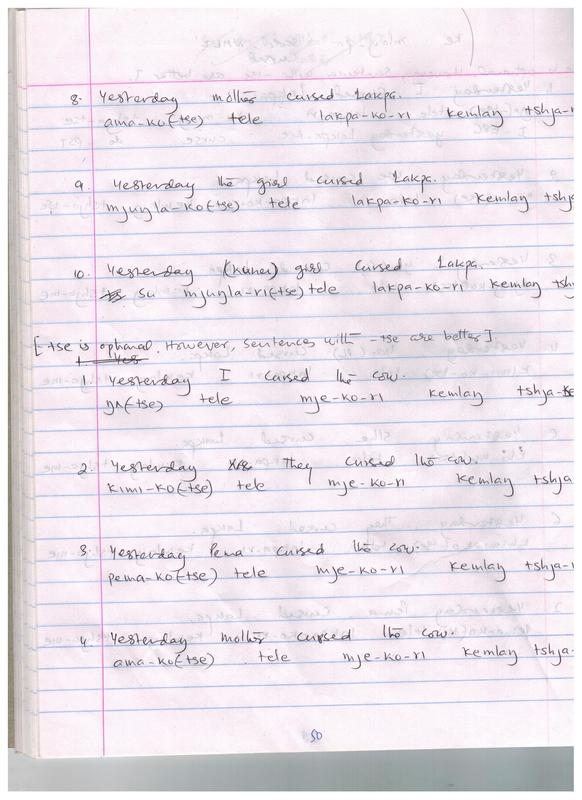 8. Yesterday mother cursed Lakpa.
ama-ko(-tse) tele lakpa-ko-ri kemlaŋ tshja-
9. Yesterday the girl cursed Lakpa.
mjuŋla-ko(-tse) tele lakpa-ko-ri kemlaŋ tshj
10. Yesterday (Kunei) girl cursed Lakpa.
su mjuŋla-ri(-tse) tele lakpa-ko-ri kemlaŋ tsh
[-tse is optional. However, sentences with -tse are better]
1. Yesterday I cursed the cow.
ŋʌ(-tse) tele mje-ko-ri kemlaŋ tshja-
2. Yesterday they cursed the cow.
kimi-ko(-tse) tele mje-ko-ri kemlaŋ tshja-
3. Yesterday Pema cursed the cow.
pema-ko(-tse) tele mje-ko-ri kemlaŋ tshja-
4. Yesterday mother cursed the cow.
ama-ko(-tse) tele mje-ko-ri kemlaŋ tshja-
50